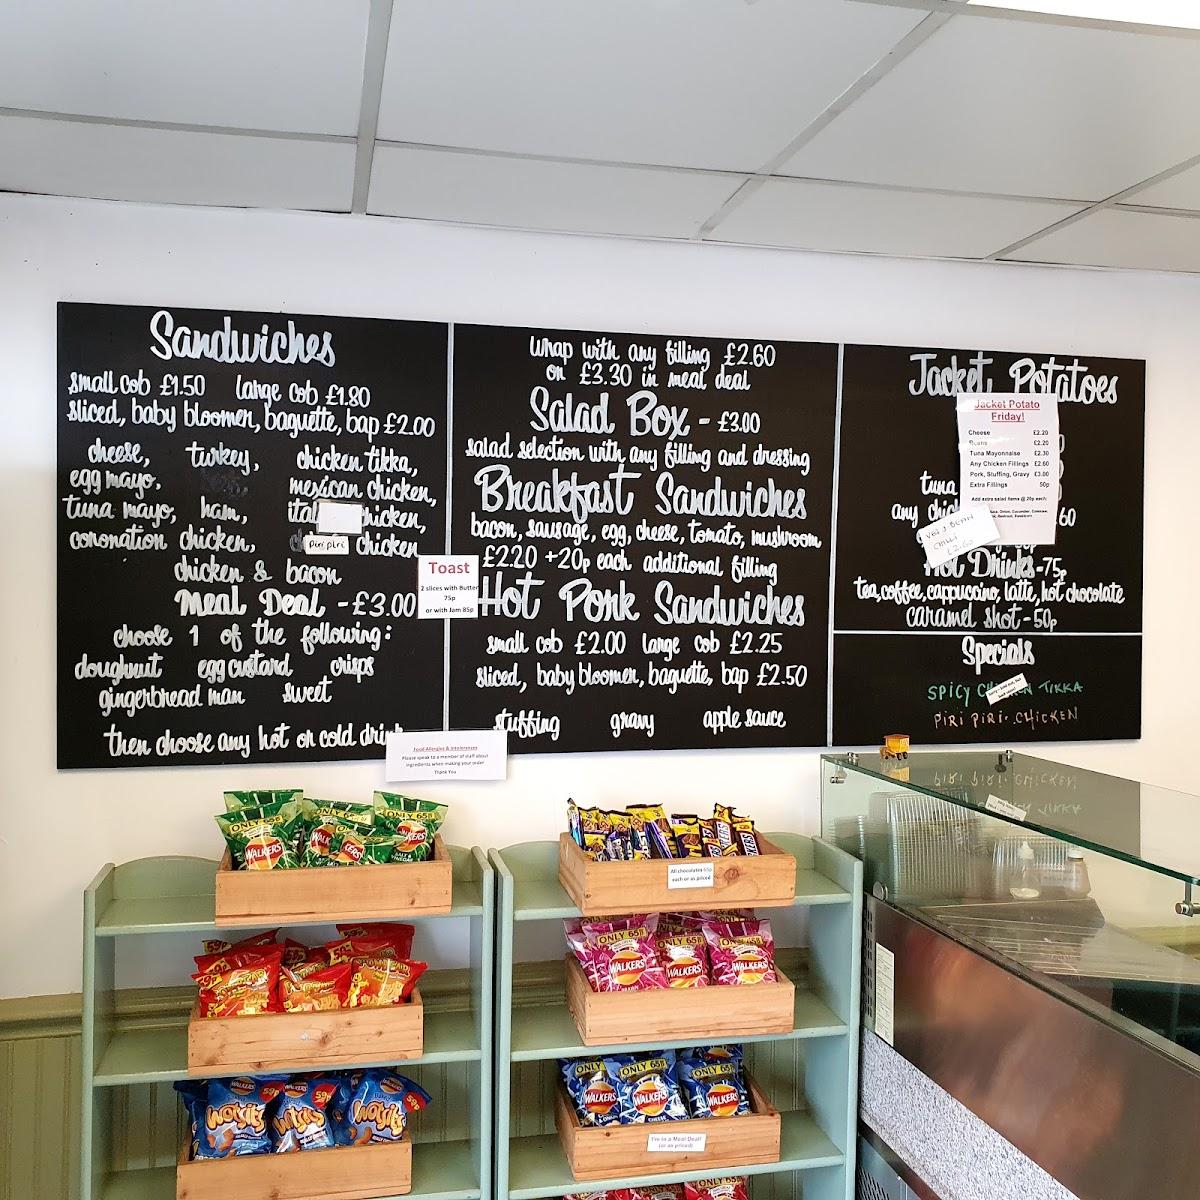 Sandwiches
small cob £1.50 large cob £1.80
sliced, baby bloomer, baguette, bap £2.00
cheese, turkey, chicken tikka,
egg mayo, mexican chicken,
tuna mayo, ham, chicken,
coronation chicken, piri piri chicken
chicken & bacon
Meal Deal - £3.00
choose 1 of the following:
doughnut egg custard crisps
gingerbread man sweet
then choose any hot or cold drink
Toast
2 slices with Butter
75p
or with Jam 85p
Food Allergies & Intolerances
Please speak to a member of staff about
ingredients when making your order
Thank You
wrap with any filling £2.60
or £3.30 in meal deal
Salad Box - £3.00
salad selection with any filling and dressing
Breakfast Sandwiches
bacon, sausage, egg, cheese, tomato, mushroom
£2.20 +20p each additional filling
Hot Pork Sandwiches
small cob £2.00 large cob £2.25
sliced, baby bloomer, baguette, bap £2.50
stuffing gravy apple sauce
Jacket Potatoes
Jacket Potato
Friday!
Cheese £2.20
Beans £2.20
Tuna Mayonnaise £2.30
Any Chicken Fillings £2.60
Pork, Stuffing, Gravy £3.00
Extra Fillings 50p
Add extra salad items @ 20p each:
tuna
any
Hot Drinks - 75p
tea, coffee, cappuccino, latte, hot chocolate
caramel shot - 50p
Specials
SPICY CHICKEN TIKKA
PIRI PIRI CHICKEN
ONLY 65p
WALKERS
SALT &
VINEGAR
All chocolates 65p
each or as priced
59p
ONLY 65p
WALKERS
ONLY 65p
WALKERS
ONLY 65p
WALKERS
59p
WALKERS
Wotsits
ONLY 65p
WALKERS
ONLY 65p
WALKERS
CHEESE
ONLY 65p
WALKERS
I'm in a Meal Deal!
(or as priced)